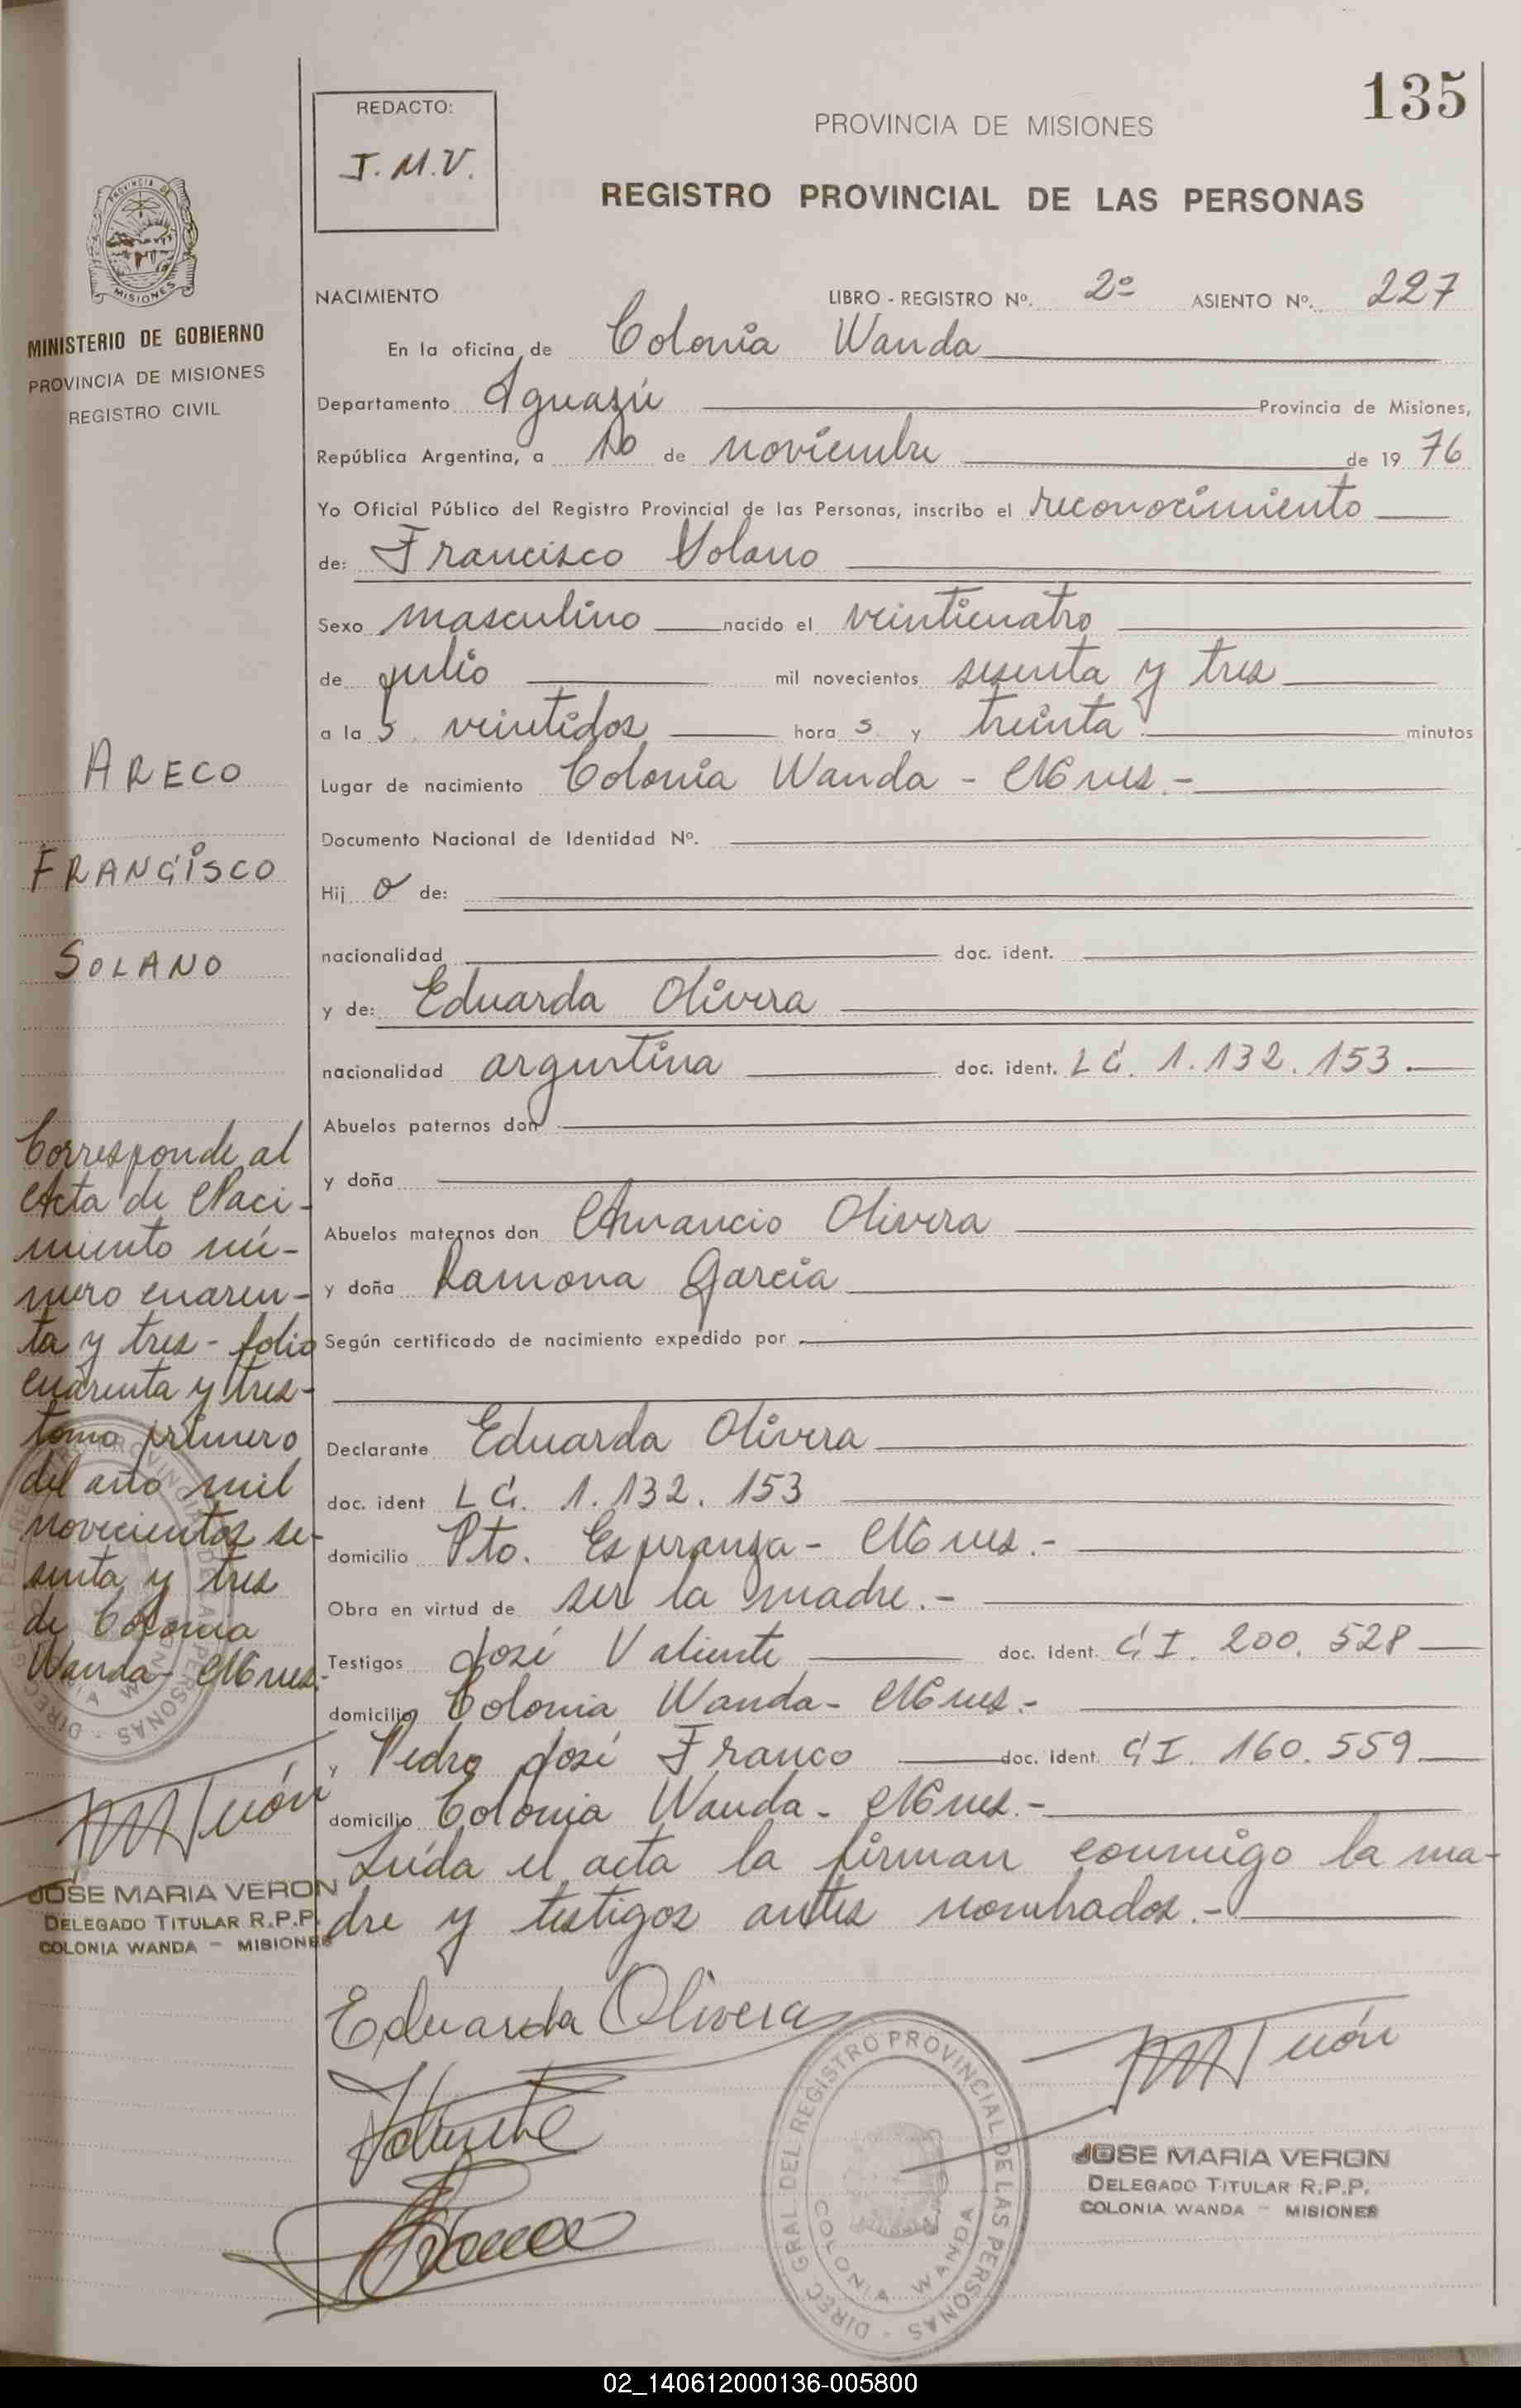 135
REDACTO:
J.M.V.
PROVINCIA DE MISIONES
REGISTRO PROVINCIAL DE LAS PERSONAS
PROVINCIA DE
MISIONES
MINISTERIO DE GOBIERNO
PROVINCIA DE MISIONES
REGISTRO CIVIL
NACIMIENTO LIBRO - REGISTRO Nº. 2º ASIENTO Nº. 227
En la oficina de Colonia Wanda
Departamento Iguazú Provincia de Misiones,
República Argentina, a 10 de noviembre de 19 76
Yo Oficial Público del Registro Provincial de las Personas, inscribo el reconocimiento
de: Francisco Solano
Sexo masculino nacido el veinticuatro
de julio mil novecientos sesenta y tres
a la s veintidos hora s y treinta minutos
Lugar de nacimiento Colonia Wanda - Mnes.-
Documento Nacional de Identidad Nº.
Hij o de:
nacionalidad doc. ident.
y de: Eduarda Olivera
nacionalidad argentina doc. ident. L C. 1.132.153.
Abuelos paternos don
y doña
Abuelos maternos don Amancio Olivera
y doña Ramona Garcia
Según certificado de nacimiento expedido por
Declarante Eduarda Olivera
doc. ident L C. 1.132.153
domicilio Pto. Esperanza - Mnes.-
Obra en virtud de ser la madre.-
Testigos José Valiente doc. ident. C I. 200.528
domicilio Colonia Wanda - Mnes.-
y Pedro José Franco doc. ident. C I. 160.559
domicilio Colonia Wanda - Mnes.-
Leída el acta la firman conmigo la ma-
dre y testigos antes nombrados.-
ARECO
FRANCISCO
SOLANO
Corresponde al
Acta de Naci-
miento nú-
mero cuaren-
ta y tres - folio
cuarenta y tres-
tomo primero
del año mil
novecientos se-
senta y tres
de Colonia
Wanda - Mnes.-
JOSE MARIA VERON
DELEGADO TITULAR R.P.P.
COLONIA WANDA - MISIONES
Eduarda Olivera
Valiente
Franco
DIREC GRAL DEL REGISTRO PROVINCIAL DE LAS PERSONAS
COLONIA WANDA
JOSE MARIA VERON
DELEGADO TITULAR R.P.P.
COLONIA WANDA - MISIONES
02_140612000136-005800